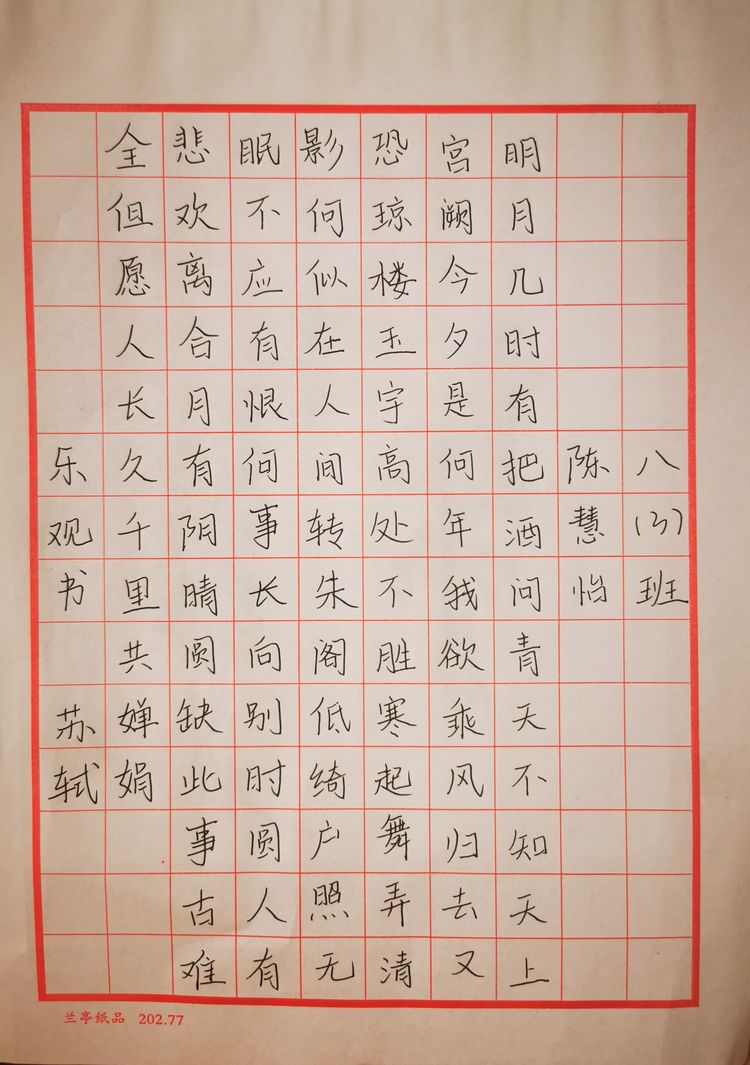 八(3)班
陈慧怡
明月几时有把酒问青天不知天上
宫阙今夕是何年我欲乘风归去又
恐琼楼玉宇高处不胜寒起舞弄清
影何似在人间转朱阁低绮户照无
眠不应有恨何事长向别时圆人有
悲欢离合月有阴晴圆缺此事古难
全但愿人长久千里共婵娟
乐观书 苏轼
兰亭纸品 202.77